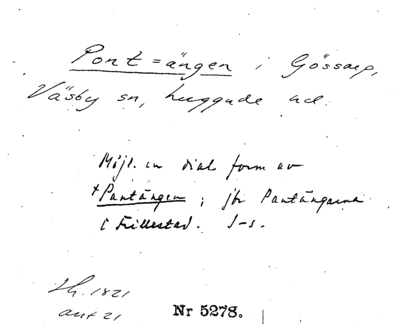 Pont=ängen i Gössarp,
Väsby sn, huggude ud.
Möjl. en dial form av
*Pantängen ; jfr Pantängarna
i Fillestad. J-s.
1821
ant 21
Nr 5278.